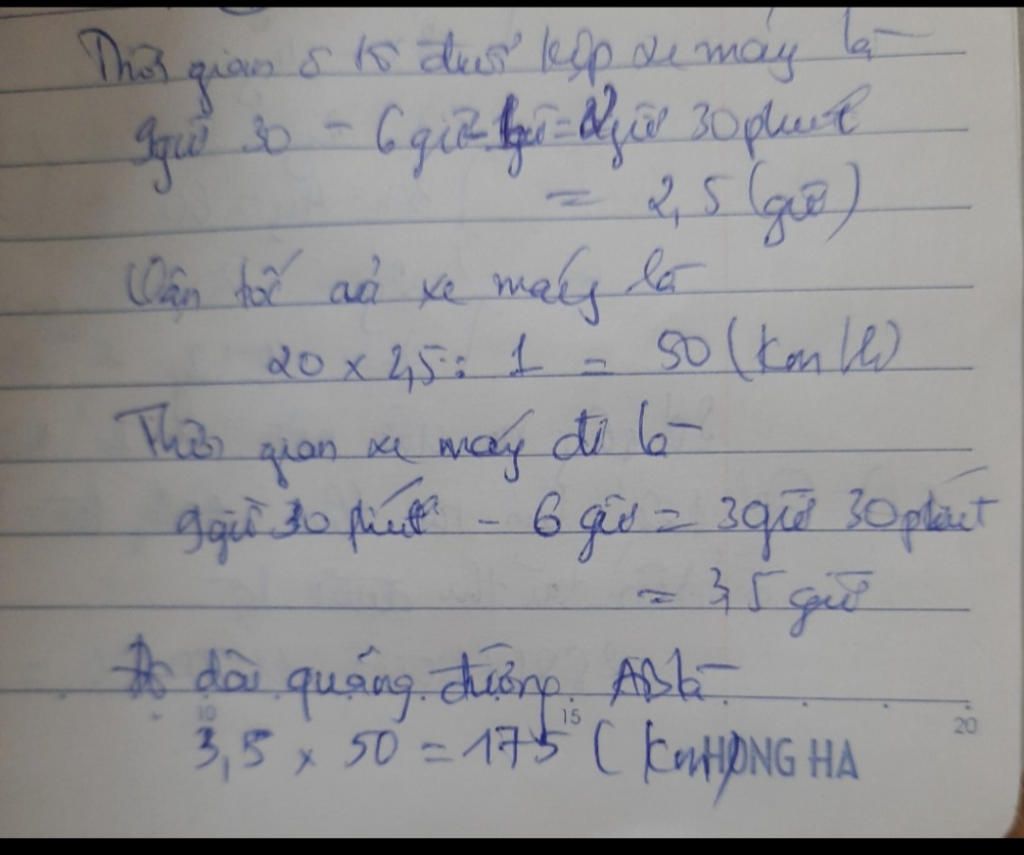 Thời gian ô tô đuổi kịp xe máy là
9giờ 30 - 6 giờ - 1giờ = 2giờ 30 phút
= 2,5 (giờ)
Vận tốc của xe máy là
20 x 2,5 : 1 = 50 (km/h)
Thời gian xe máy đi là
9giờ 30 phút - 6 giờ = 3giờ 30 phút
= 3,5 giờ
Độ dài quãng đường AB là
10 15 20
3,5 x 50 = 175 (km) HONG HA